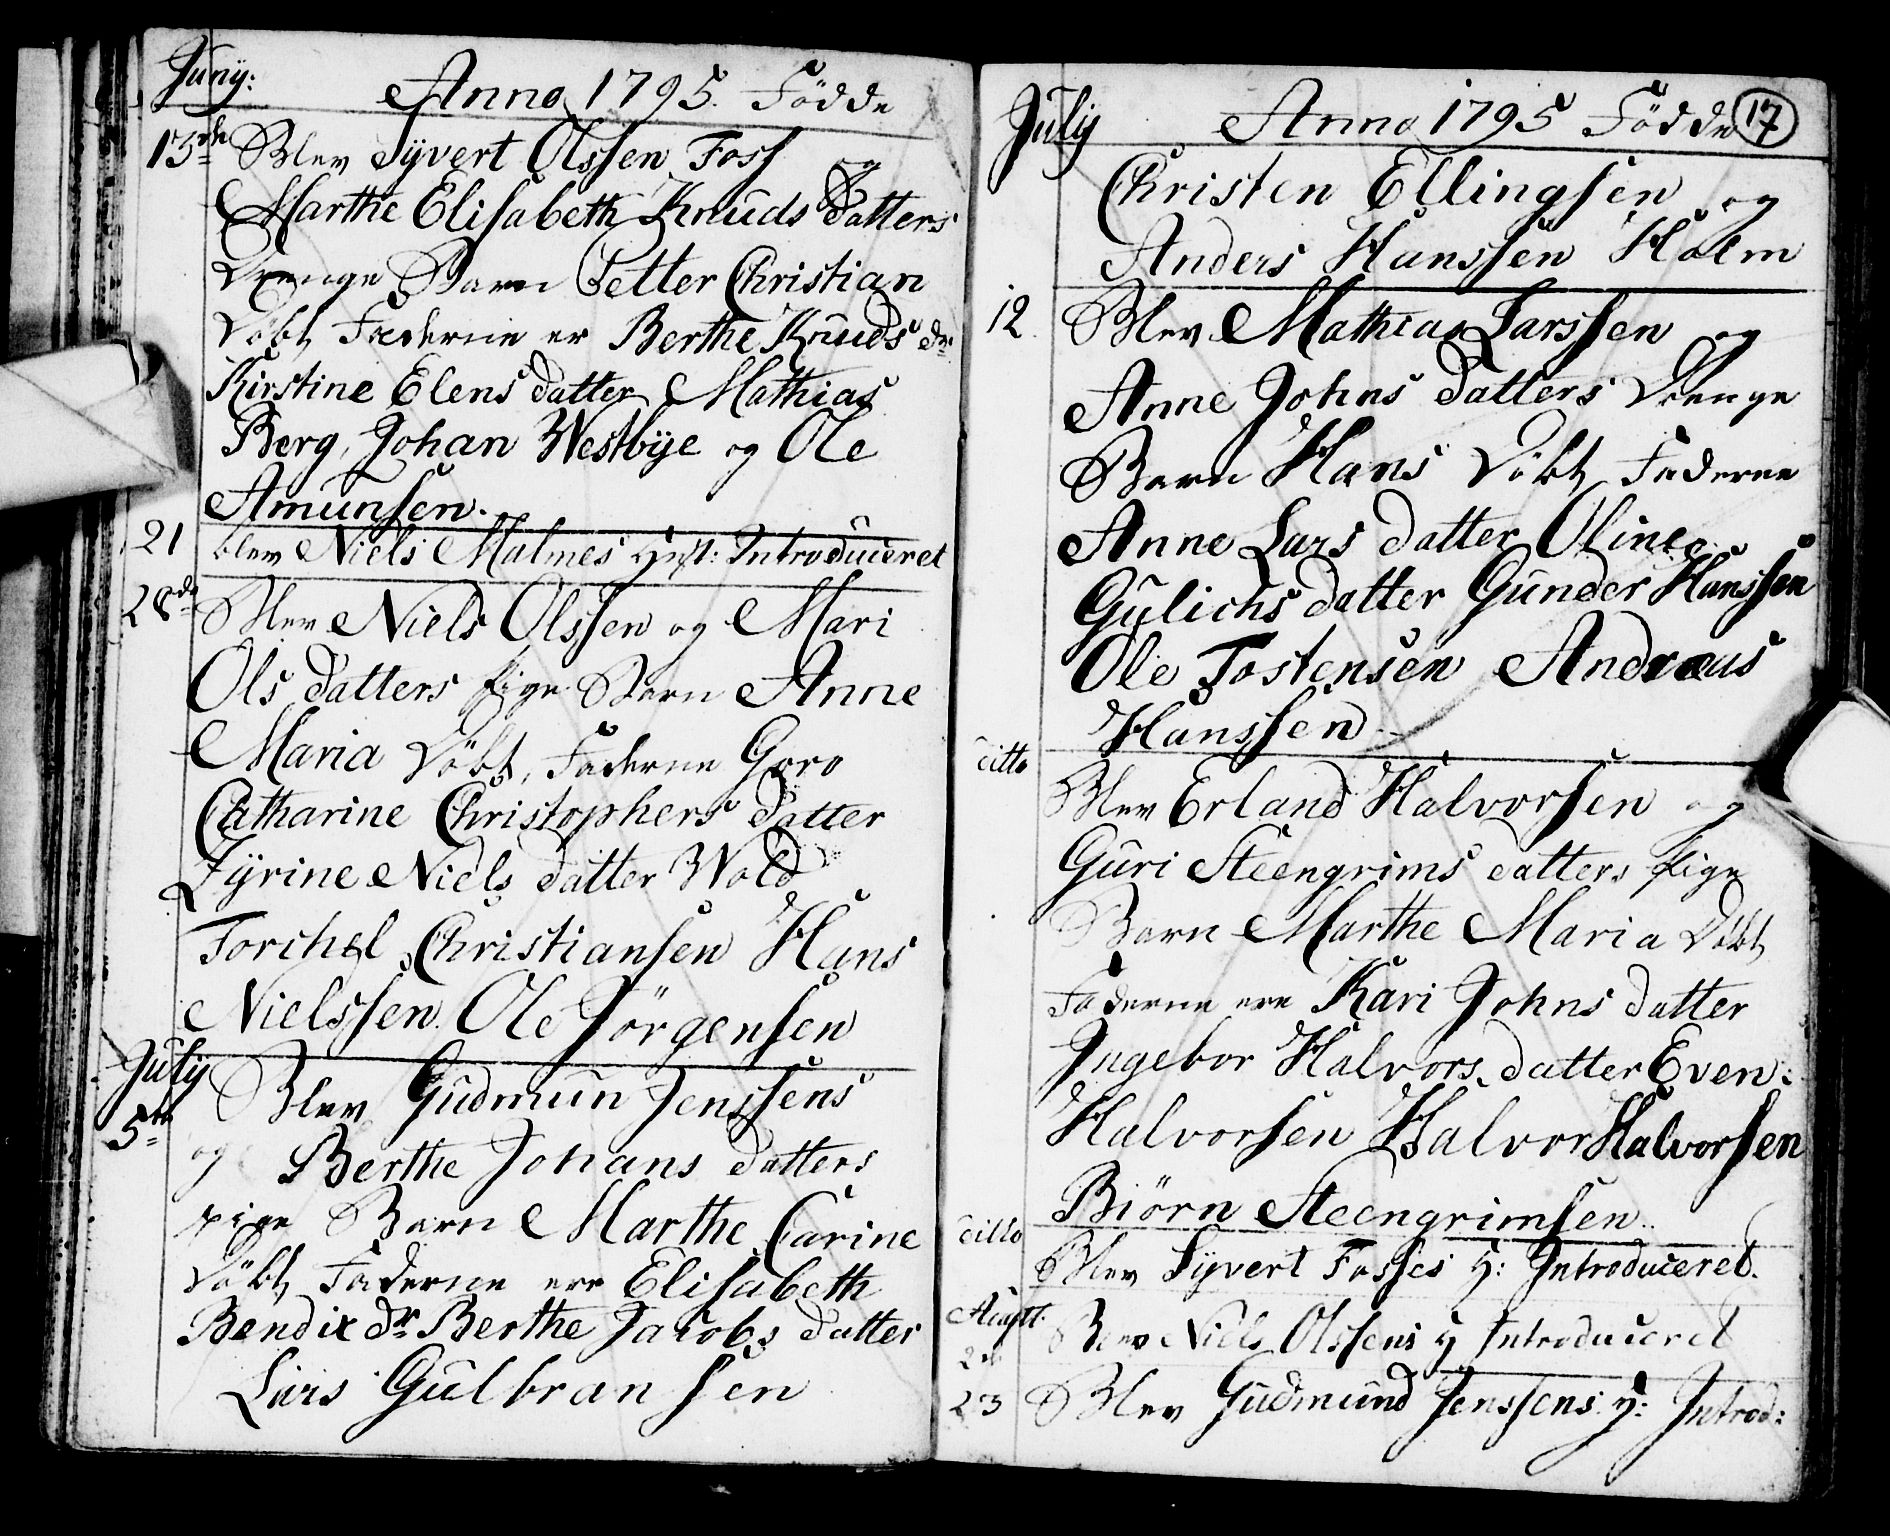 Junÿ:
Anno 1795. Födde
13de Blev Syvert Olssen Foss og
Marthe Elisabeth Knuds datters
Drenge Barn Petter Christian
Döbt Fadderne er Berthe Knuds dr
Kirstine Elens datter Mathias
Berg, Johan Westbÿe og Ole
Amunsen.
21 blev Niels Malmes Hust: Introduceret
28de Blev Niels Olssen og Mari
Ols datters Pige Barn Anne
Maria Döbt, Faderne Goro
Catharine Christophers datter
Zÿrine Niels datter Wold
Torchel Christiansen Hans
Nielssen. Ole Jörgensen
Julÿ
5te Blev Gudmun Jenssens
og Berthe Johans datters
pige Barn Marthe Carine
Döbt Faderne ere Elisabeth
Bendix dr Berthe Jacobs datter
Lars Gulbransen
Julÿ Anno 1795 Födde 17
Christen Ellingsen og
Anders Hanssen Holm
12 Blev Mathias Larssen og
Anne Johns datters Drenge
Barn Hans Döbt Faderne
Anne Lars datter Oline
Gulichs datter Gunder Hanssen
Ole Tostensen Andræas
Hanssen
ditto Blev Erland Halvorsen og
Guri Steengrims datters Pige
Barn Marthe Maria Döbt
Faderne ere Kari Johns datter
Ingebor Halvors datter Even:
Halvorsen Halvor Halvorsen
Biörn Steengrimsen.
ditto Blev Syvert Fosses H: Introduceret.
Augst:
2de Blev Niels Olssens H Introduceret
23 Blev Gudmund Jenssens H: Introd: